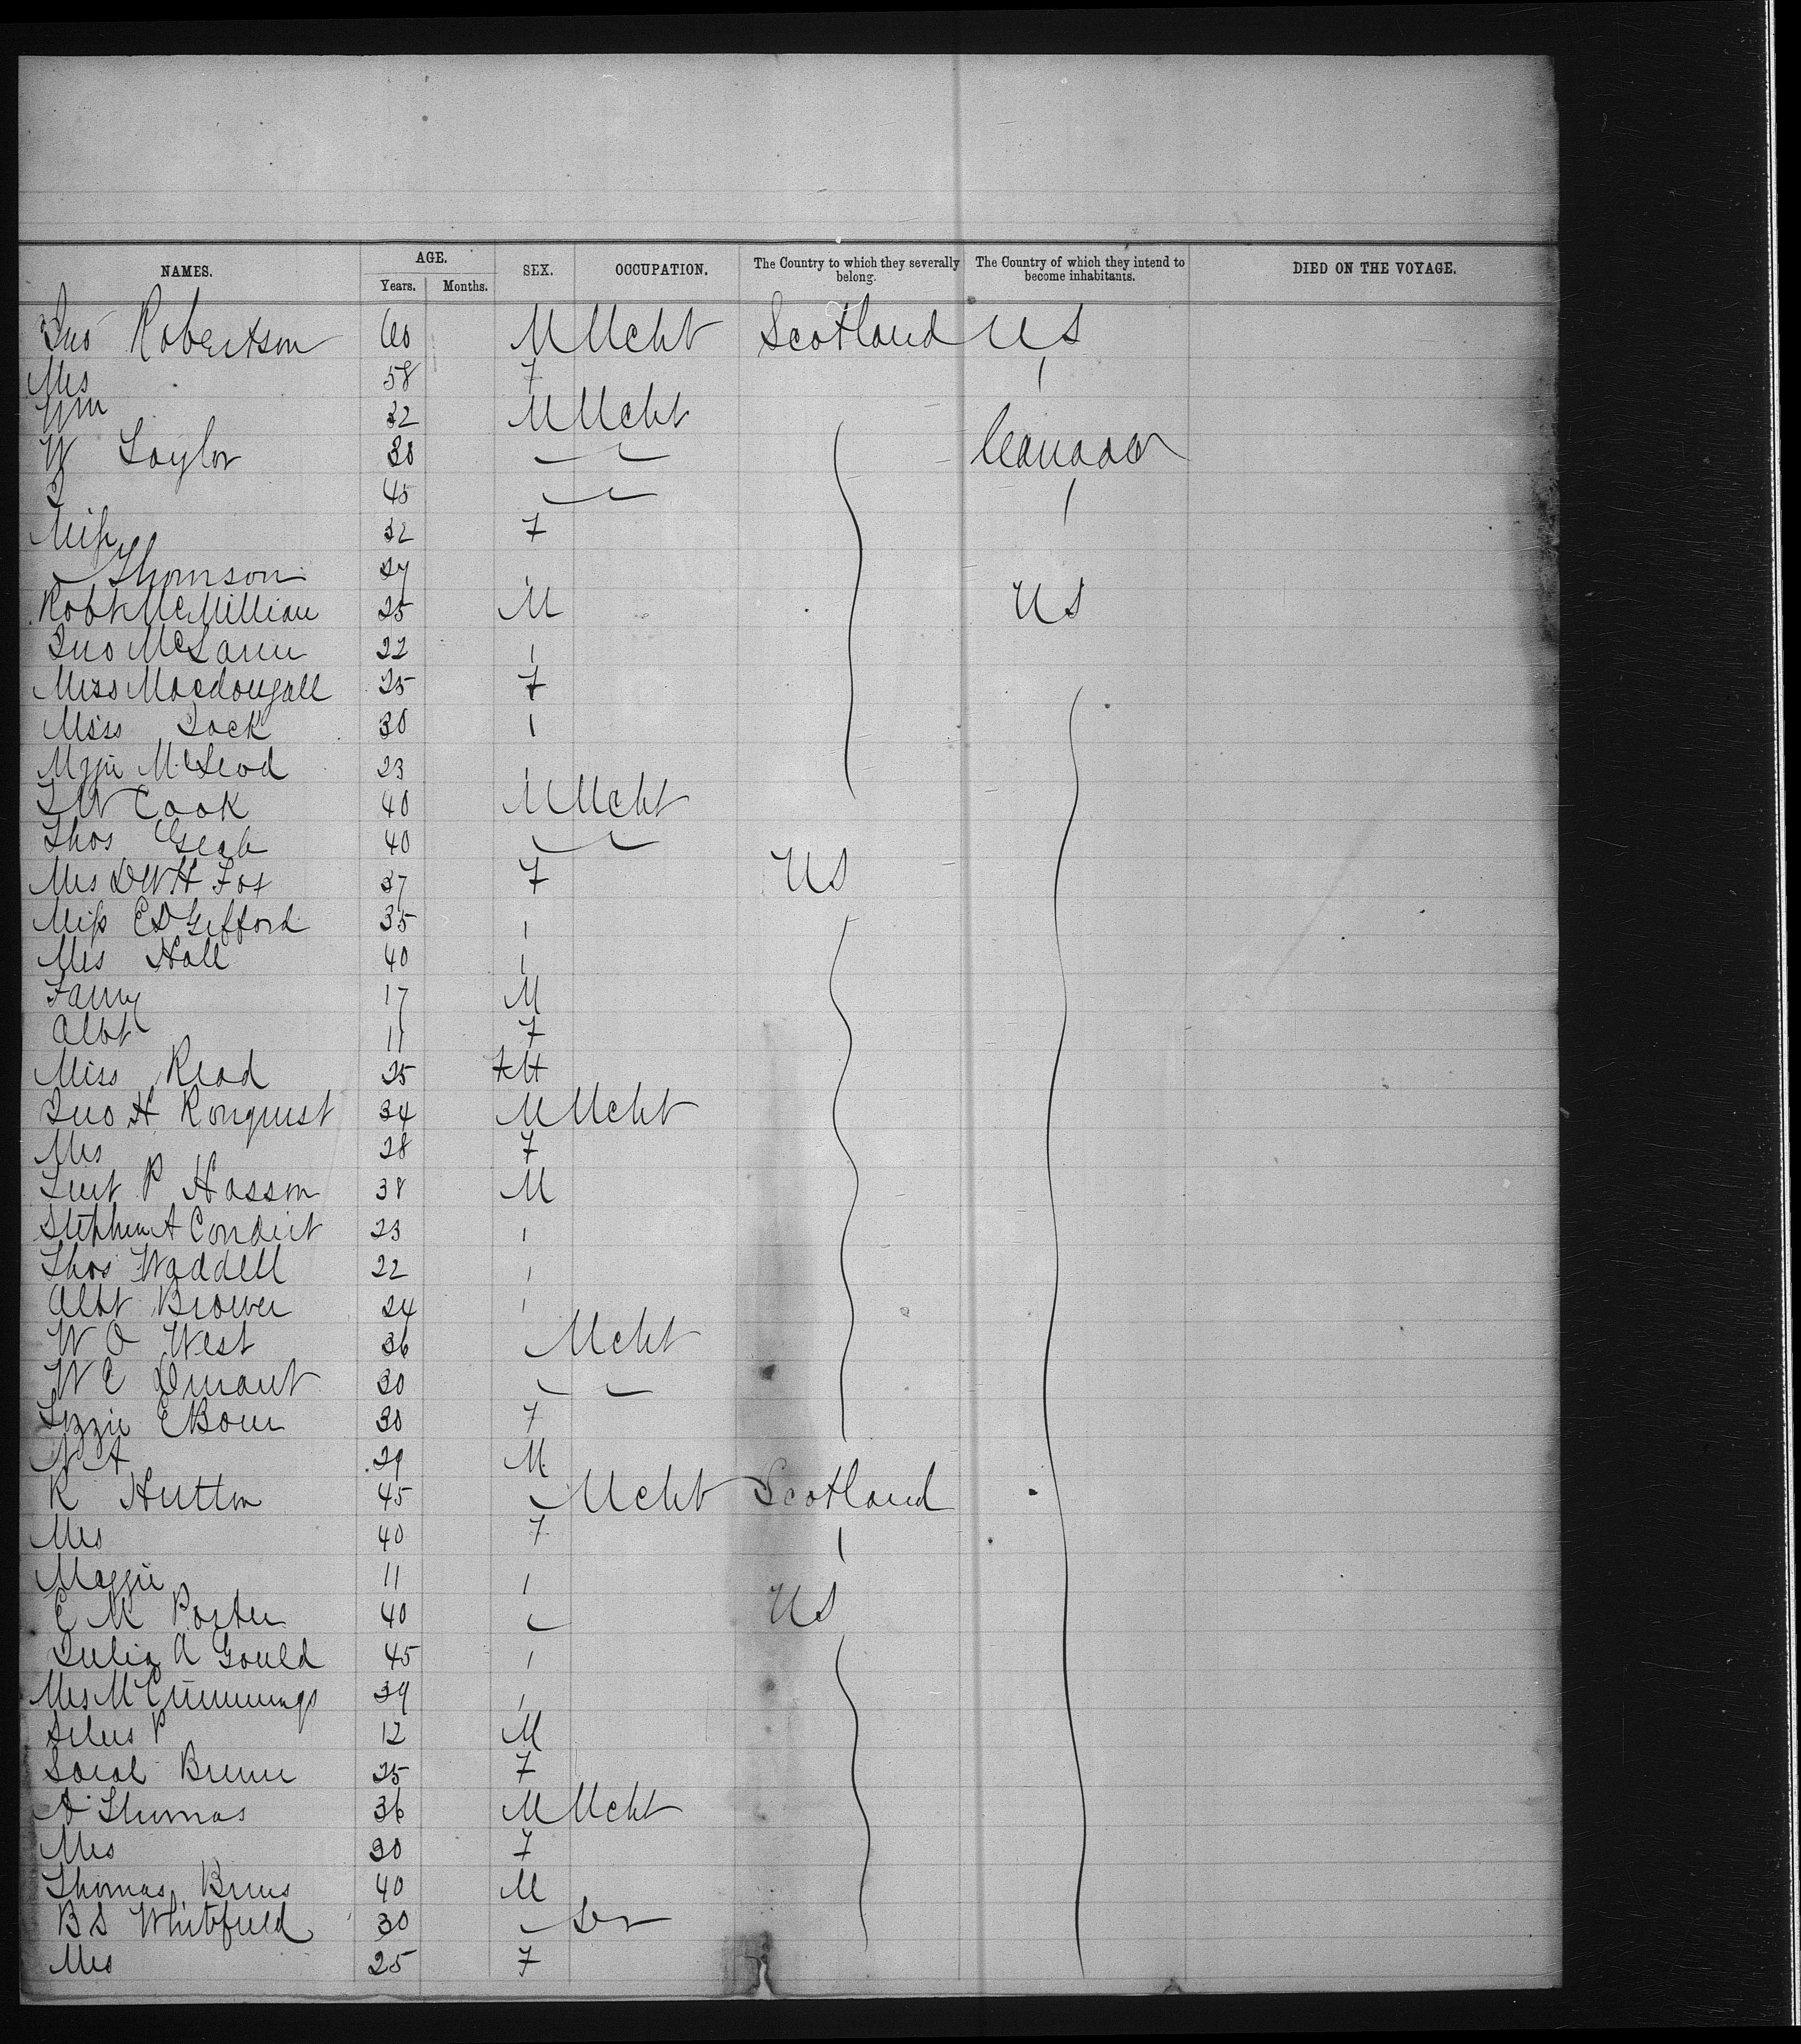 NAMES. AGE. SEX. OCCUPATION. The Country to which they severally belong. The Country of which they intend to become inhabitants. DIED ON THE VOYAGE.
Years. Months.
Jno Robertson 60 M Mcht Scotland US
Mrs 58 F
Wm 32 M Mcht
W Taylor 30 Canada
J 45
Miss 32 F
" Thomson 27
Robt McMillian 25 M US
Jno McLaren 22
Miss Macdougall 25 F
Miss Jack 30
Mggie McLeod 23
J W Cook 40 M Mcht
Thos 40
Mrs D W H Fox 37 F US
Miss E D Gifford 35
Mrs Hall 40
Fanny 17 M
Albt 11 F
Miss Read 25 F
Jno H Ronquist 34 M Mcht
Mrs 28 F
Lieut P Hasson 38 M
Stephen A Condict 23
Thos Waddell 22
Albt Brower 24
W O West 36 Mcht
W E 30
Lizzie E Bown 30 F
N A 29 M
R Hutton 45 Mcht Scotland
Mrs 40 F
Maggie 11
E M Porter 40 US
Julia A Gould 45
Mrs M Cummings 39
Silus P 12 M
Sarah 25 F
A Thomas 36 M Mcht
Mrs 30 F
Thomas Bruns 40 M
B S Whitfield 30
Mrs 25 F